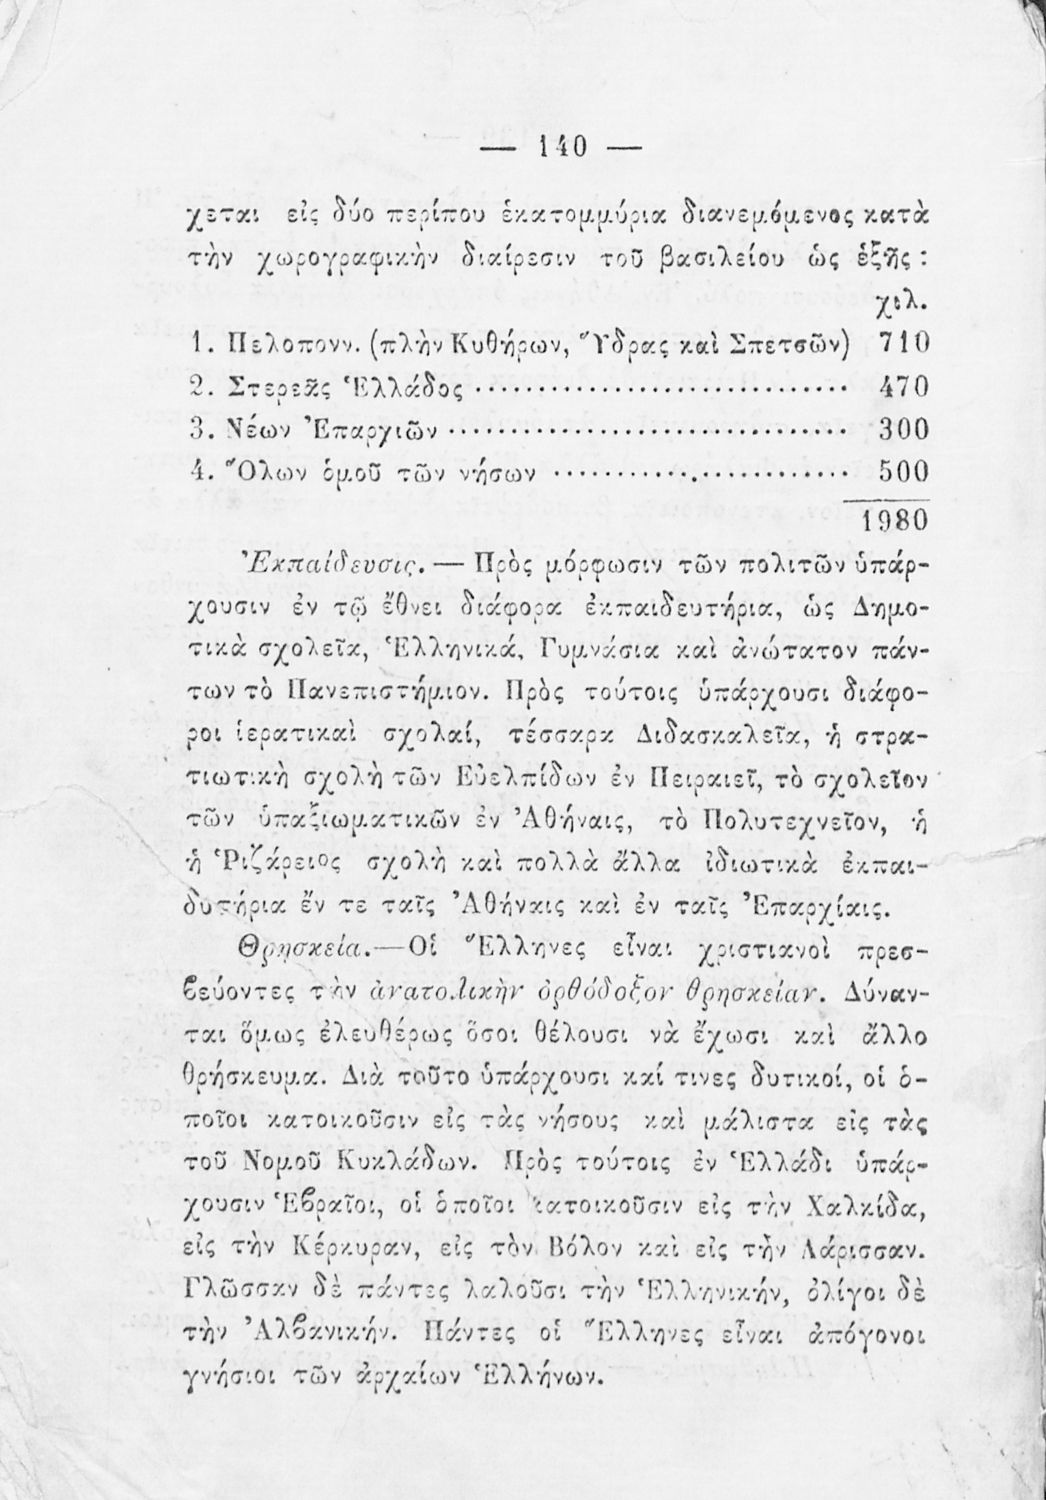 — 140 —
χεται εἰς δύο περίπου ἑκατομμύρια διανεμόμενος κατὰ
τὴν χωρογραφικὴν διαίρεσιν τοῦ βασιλείου ὡς ἑξῆς :
χιλ.
1. Πελοπονν. (πλὴν Κυθήρων, Ὕδρας καὶ Σπετσῶν) 710
2. Στερεᾶς Ἑλλάδος ······························ 470
3. Νέων Ἐπαρχιῶν ································· 300
4. Ὅλων ὁμοῦ τῶν νήσων ························ 500
1980
Ἐκπαίδευσις. — Πρὸς μόρφωσιν τῶν πολιτῶν ὑπάρ-
χουσιν ἐν τῷ ἔθνει διάφορα ἐκπαιδευτήρια, ὡς Δημο-
τικὰ σχολεῖα, Ἑλληνικά, Γυμνάσια καὶ ἀνώτατον πάν-
των τὸ Πανεπιστήμιον. Πρὸς τούτοις ὑπάρχουσι διάφο-
ροι ἱερατικαὶ σχολαί, τέσσαρα Διδασκαλεῖα, ἡ στρα-
τιωτικὴ σχολὴ τῶν Εὐελπίδων ἐν Πειραιεῖ, τὸ σχολεῖον
τῶν ὑπαξιωματικῶν ἐν Ἀθήναις, τὸ Πολυτεχνεῖον, ἡ
ἡ Ῥιζάρειος σχολὴ καὶ πολλὰ ἄλλα ἰδιωτικὰ ἐκπαι-
δυτήρια ἔν τε ταῖς Ἀθήναις καὶ ἐν ταῖς Ἐπαρχίαις.
Θρησκεία.—Οἱ Ἕλληνες εἶναι χριστιανοὶ πρεσ-
βεύοντες τὴν ἀνατολικὴν ὀρθόδοξον θρησκείαν. Δύναν-
ται ὅμως ἐλευθέρως ὅσοι θέλουσι νὰ ἔχωσι καὶ ἄλλο
θρήσκευμα. Διὰ τοῦτο ὑπάρχουσι καί τινες δυτικοί, οἱ ὁ-
ποῖοι κατοικοῦσιν εἰς τὰς νήσους καὶ μάλιστα εἰς τὰς
τοῦ Νομοῦ Κυκλάδων. Πρὸς τούτοις ἐν Ἑλλάδι ὑπάρ-
χουσιν Ἑβραῖοι, οἱ ὁποῖοι κατοικοῦσιν εἰς τὴν Χαλκίδα,
εἰς τὴν Κέρκυραν, εἰς τὸν Βόλον καὶ εἰς τὴν Λάρισσαν.
Γλῶσσαν δὲ πάντες λαλοῦσι τὴν Ἑλληνικήν, ὀλίγοι δὲ
τὴν Ἀλβανικήν. Πάντες οἱ Ἕλληνες εἶναι ἀπόγονοι
γνήσιοι τῶν ἀρχαίων Ἑλλήνων.